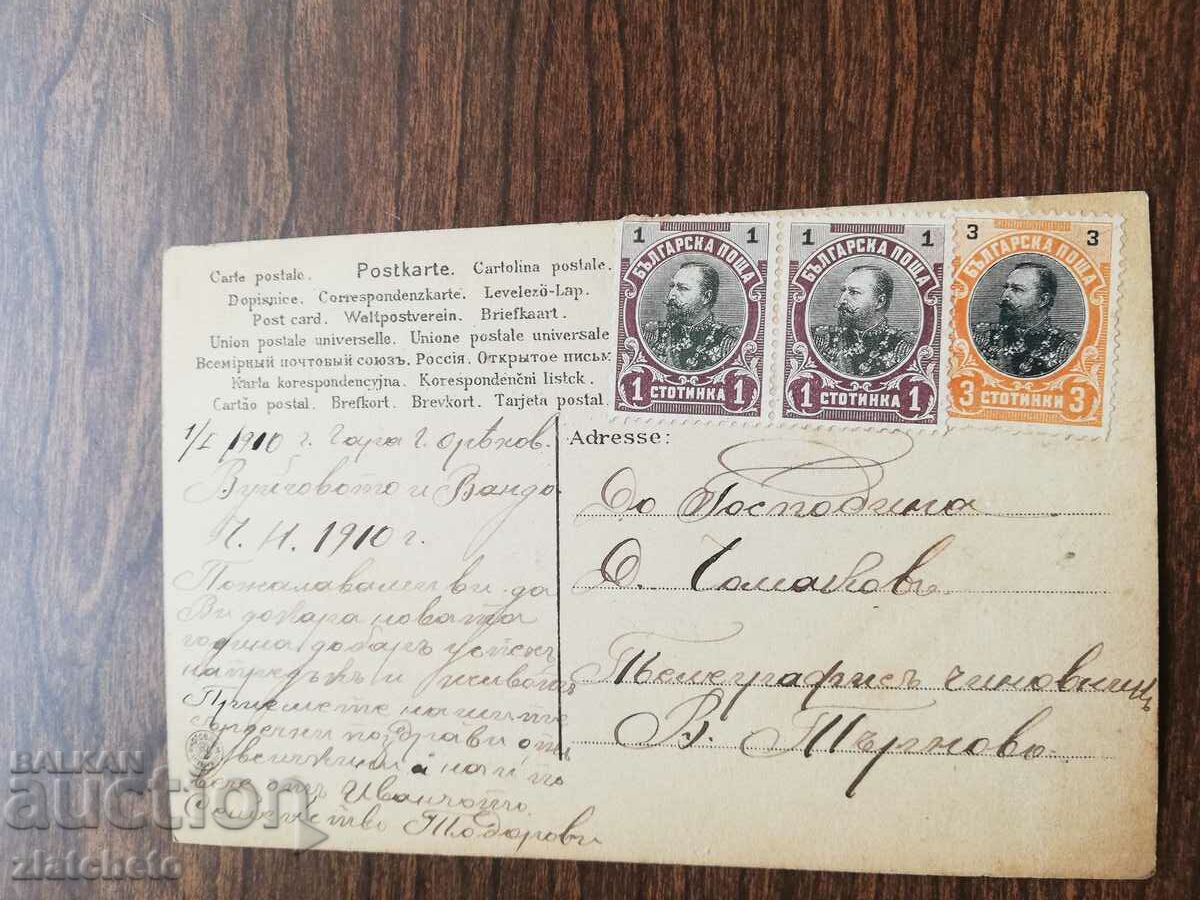 Carte postale. Postkarte. Cartolina postale.
Dopisnice. Correspondenzkarte. Levelező-Lap.
Post card. Weltpostverein. Briefkaart.
Union postale universelle. Unione postale universale
Всемірный почтовый союзъ. Россія. Открытое письм
Karta korespondencyjna. Korespondenčni listek.
Cartão postal. Brefkort. Brevkort. Tarjeta postal.
1 1
БЪЛГАРСКА ПОЩА
1 СТОТИНКА 1
1 1
БЪЛГАРСКА ПОЩА
1 СТОТИНКА 1
3 3
БЪЛГАРСКА ПОЩА
3 СТОТИНКИ 3
1/I 1910 г. Гара Г. Орѣхов.
Вуйчовото и Вандо
Ч. Н. 1910 г.
Пожалаваме ви да
Ви докара новата
година добаръ успехъ
напредъкъ и животъ
Приемете нашите
сърдечни поздрави отъ
всички
отъ Иванчото
Семейство Тодорови
Adresse:
До Господина
Д. Чомаковъ
Телеграфисъ чиновникъ
В. Търново
BALKAN
auction
zlatcheto